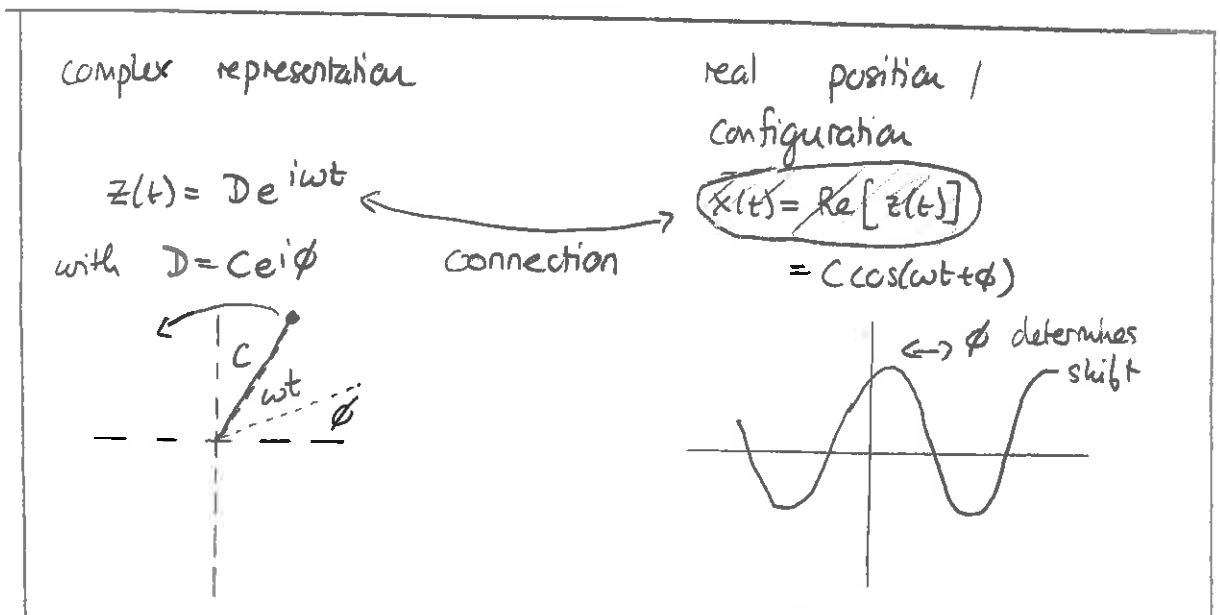 complex representation
z(t) = D e^{iωt}
with D = C e^{iϕ}
C
ωt
ϕ
connection
real position /
configuration
x(t) = Re[z(t)]
= C cos(ωt+ϕ)
ϕ determines
shift